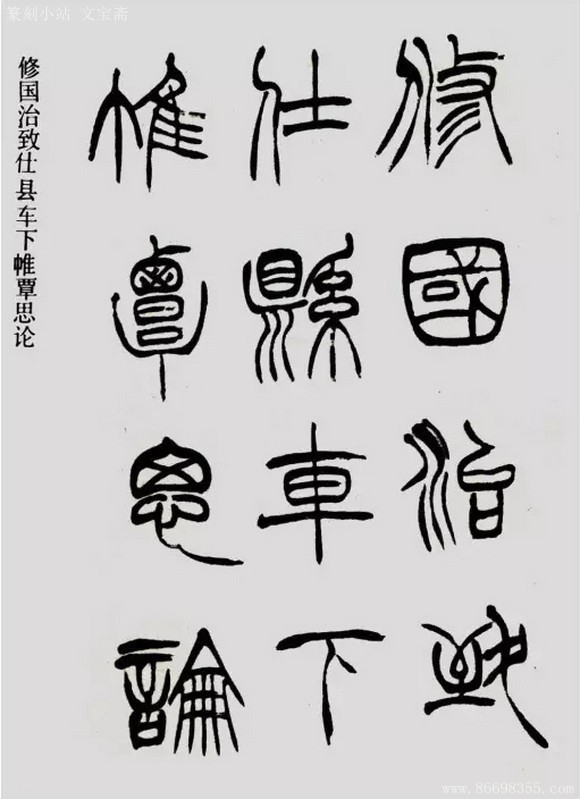 篆刻小站 文宝斋
修國治致
仕縣車下
帷覃思論
修国治致仕县车下帷覃思论
www.86698355.com